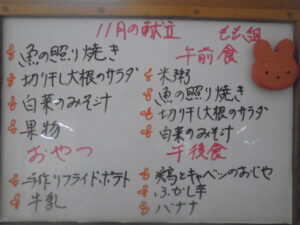 11月の献立 もも組
魚の照り焼き
切り干し大根のサラダ
白菜のみそ汁
果物
おやつ
手作りフライドポテト
牛乳
午前食
米粥
魚の照り焼き
切り干し大根のサラダ
白菜のみそ汁
午後食
鶏とキャベツのおじや
ふかし芋
バナナ